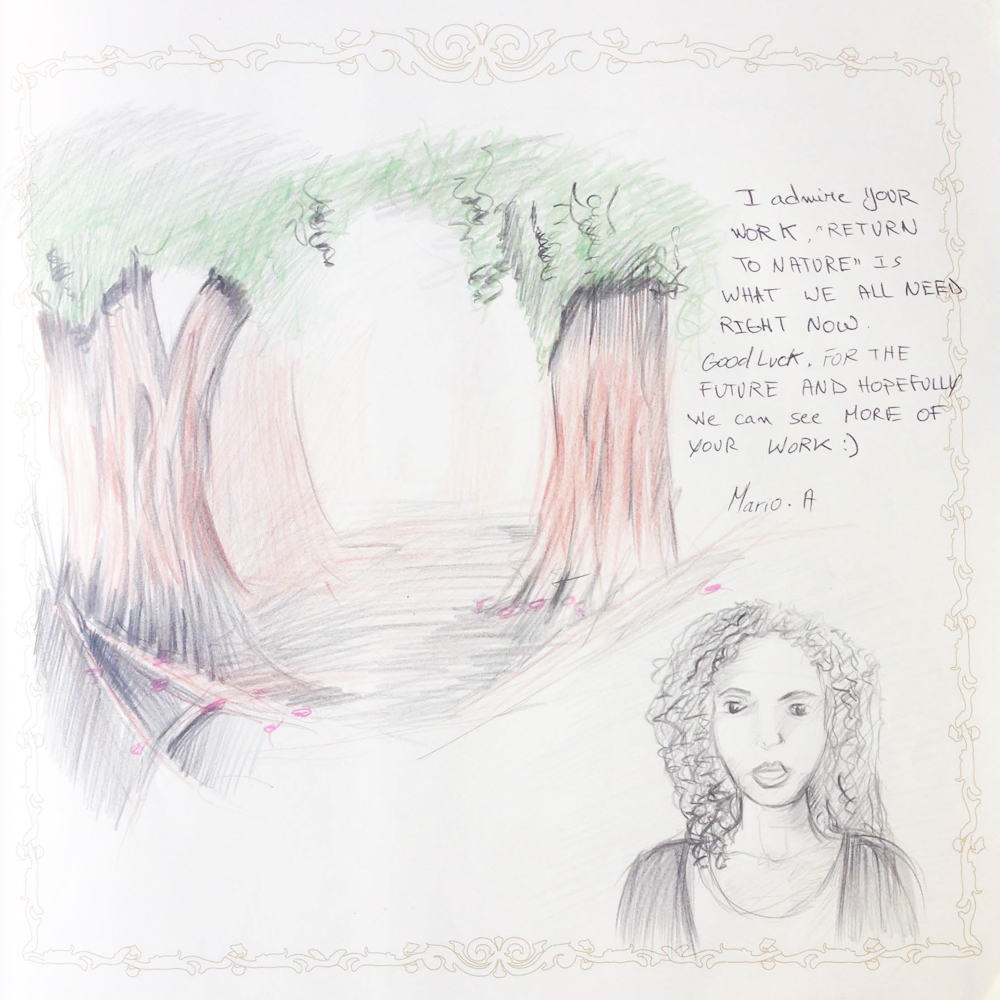 I admire YOUR
WORK, "RETURN
TO NATURE" IS
WHAT WE ALL NEED
RIGHT NOW.
Good Luck, FOR THE
FUTURE AND HOPEFULLY
We can see MORE OF
YOUR WORK :)
Mario. A